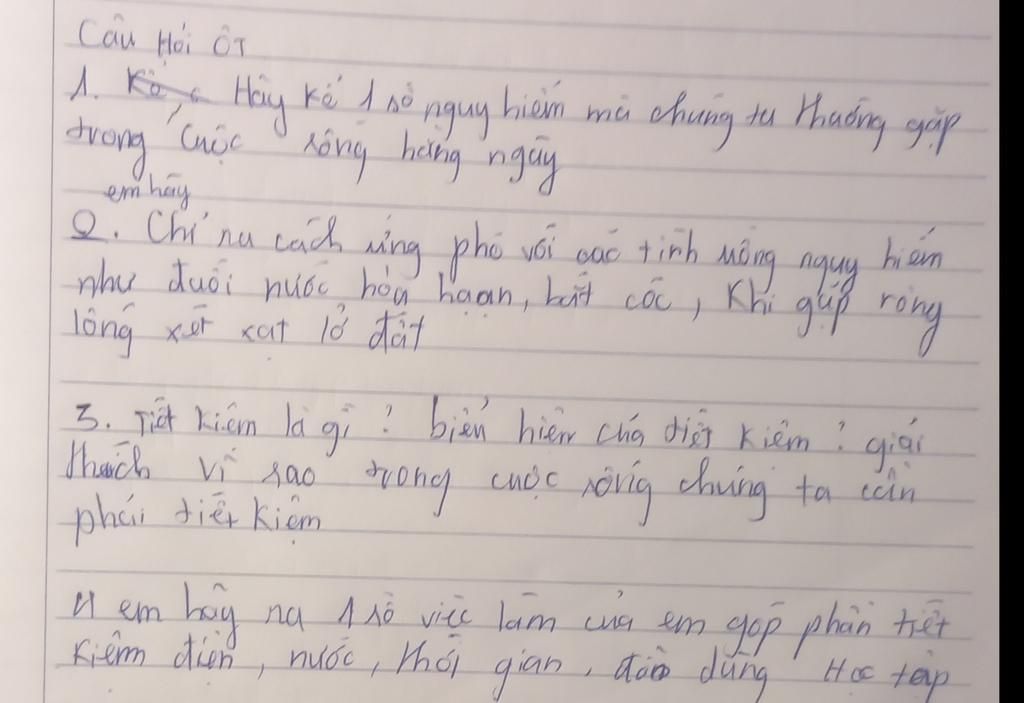 Câu Hỏi ÔT
1. Hãy kể 1 số nguy hiểm mà chúng ta thường gặp
trong cuộc sống hằng ngày
em hãy
2. Chỉ ra cách ứng phó với các tình uống nguy hiểm
như đuối nước hỏa hoạn, bắt cóc, Khi gặp rông
lông xét xạt lở đất
3. Tiết kiệm là gì ? biểu hiện của tiết kiệm ? giải
thích vì sao trong cuộc sống chúng ta cần
phải tiết kiệm
4 em hãy na 1 số việc làm của em góp phần tiết
kiệm điện, nước, thời gian, đồ dùng Học tập